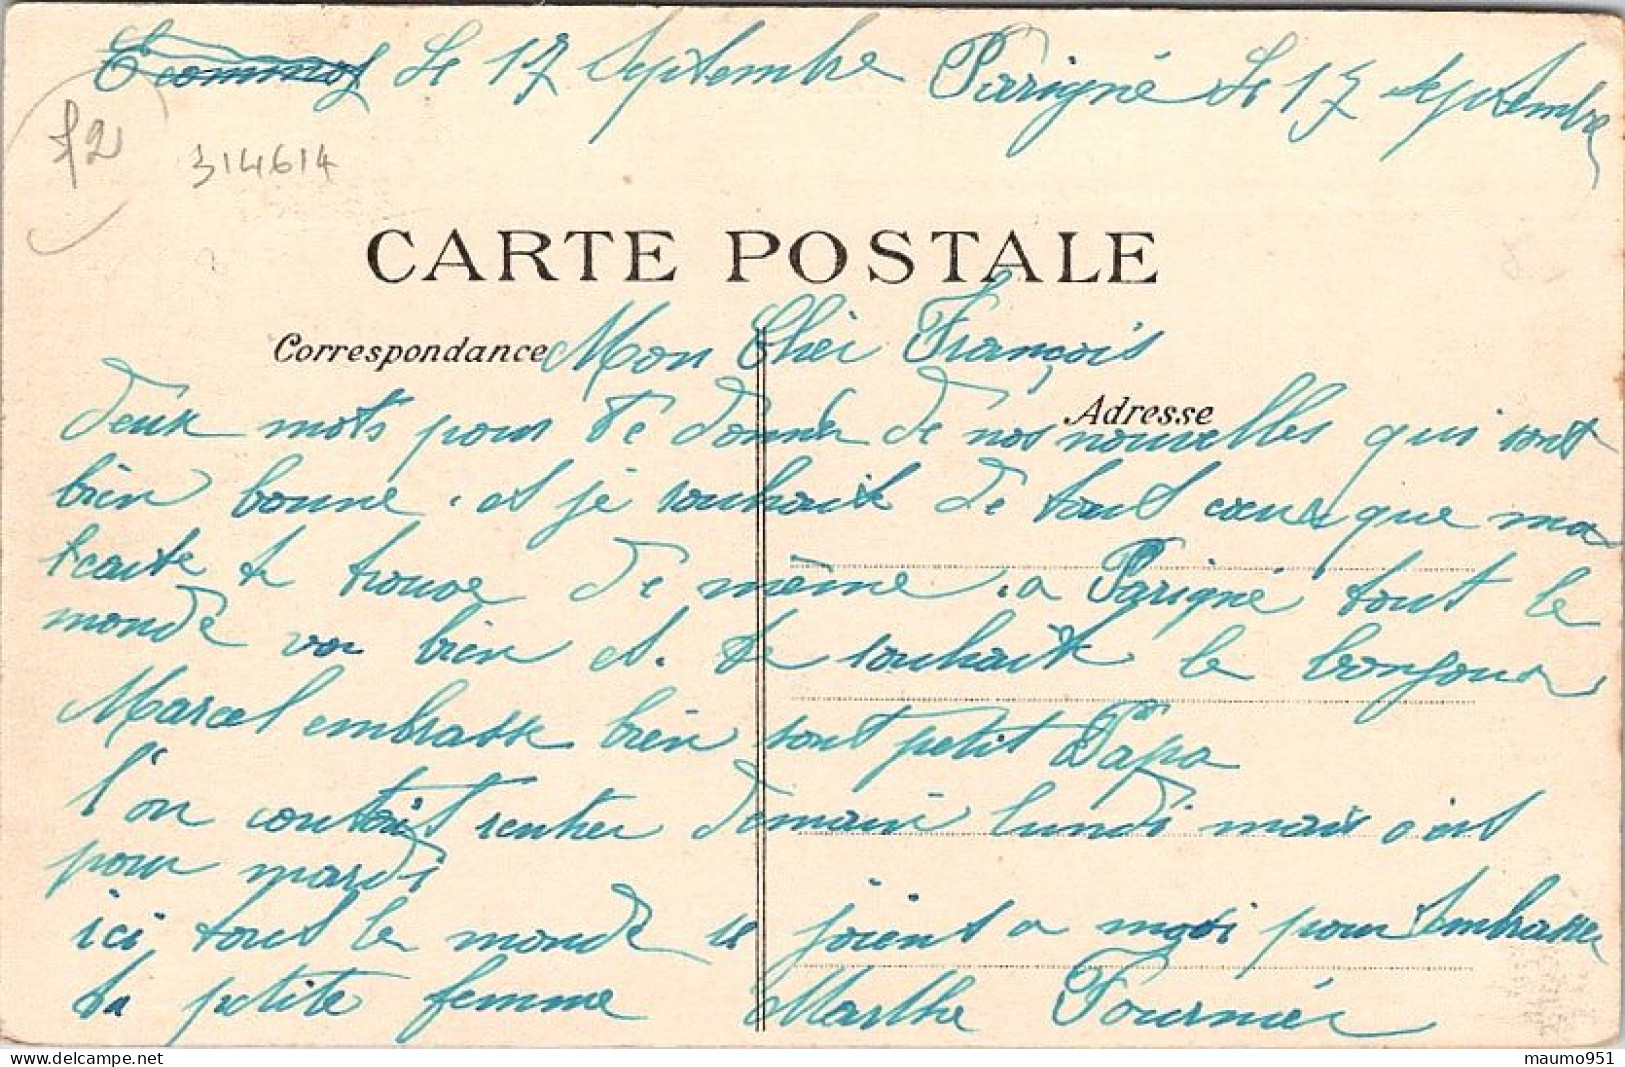 Ecommoy Le 17 Septembre Parigné Le 17 septembre
72
314614
CARTE POSTALE
Correspondance Mon Cher François
Adresse
deux mots pour te donner de nos nouvelles qui sont
bien bonne. et je souhait de tout cœur que ma
carte te trouve de même. a Parigné tout le
monde va bien et. te souhait le bonjour
Marcel embrasse bien sont petit Papa
l'on comtait rentrer demain lundi mais c'est
pour mardi
ici tout le monde se joient a moi pour t'embrasser
ta petite femme Marthe Fournier
maumo951